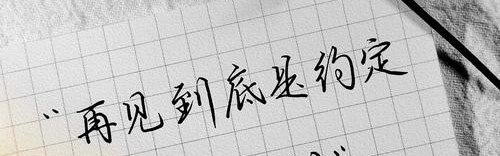 “再见到底是约定
”